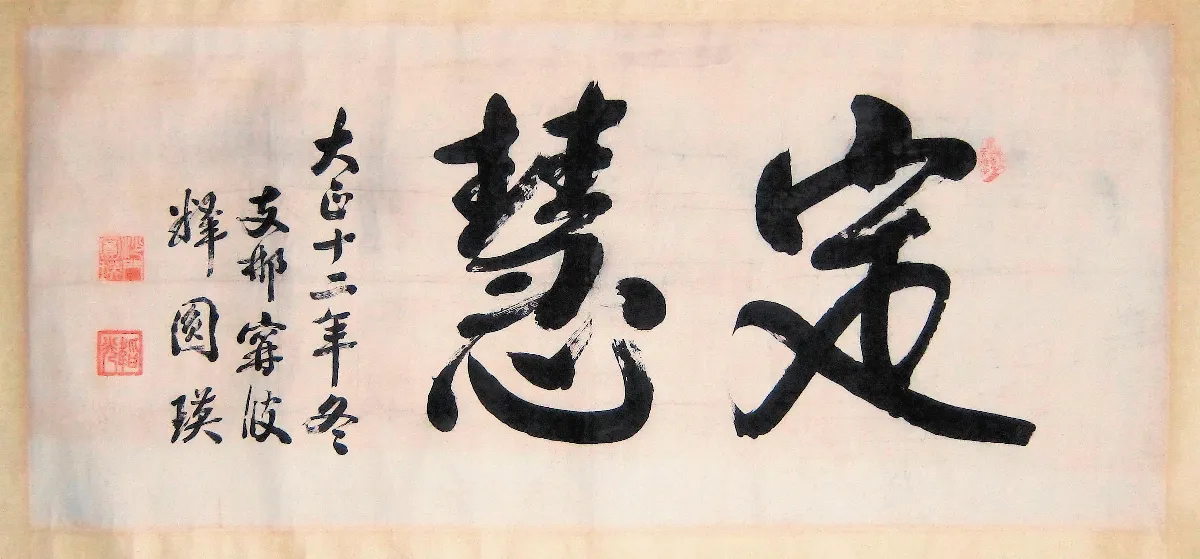 定慧
大正十二年冬
支那甯波
釋圓瑛